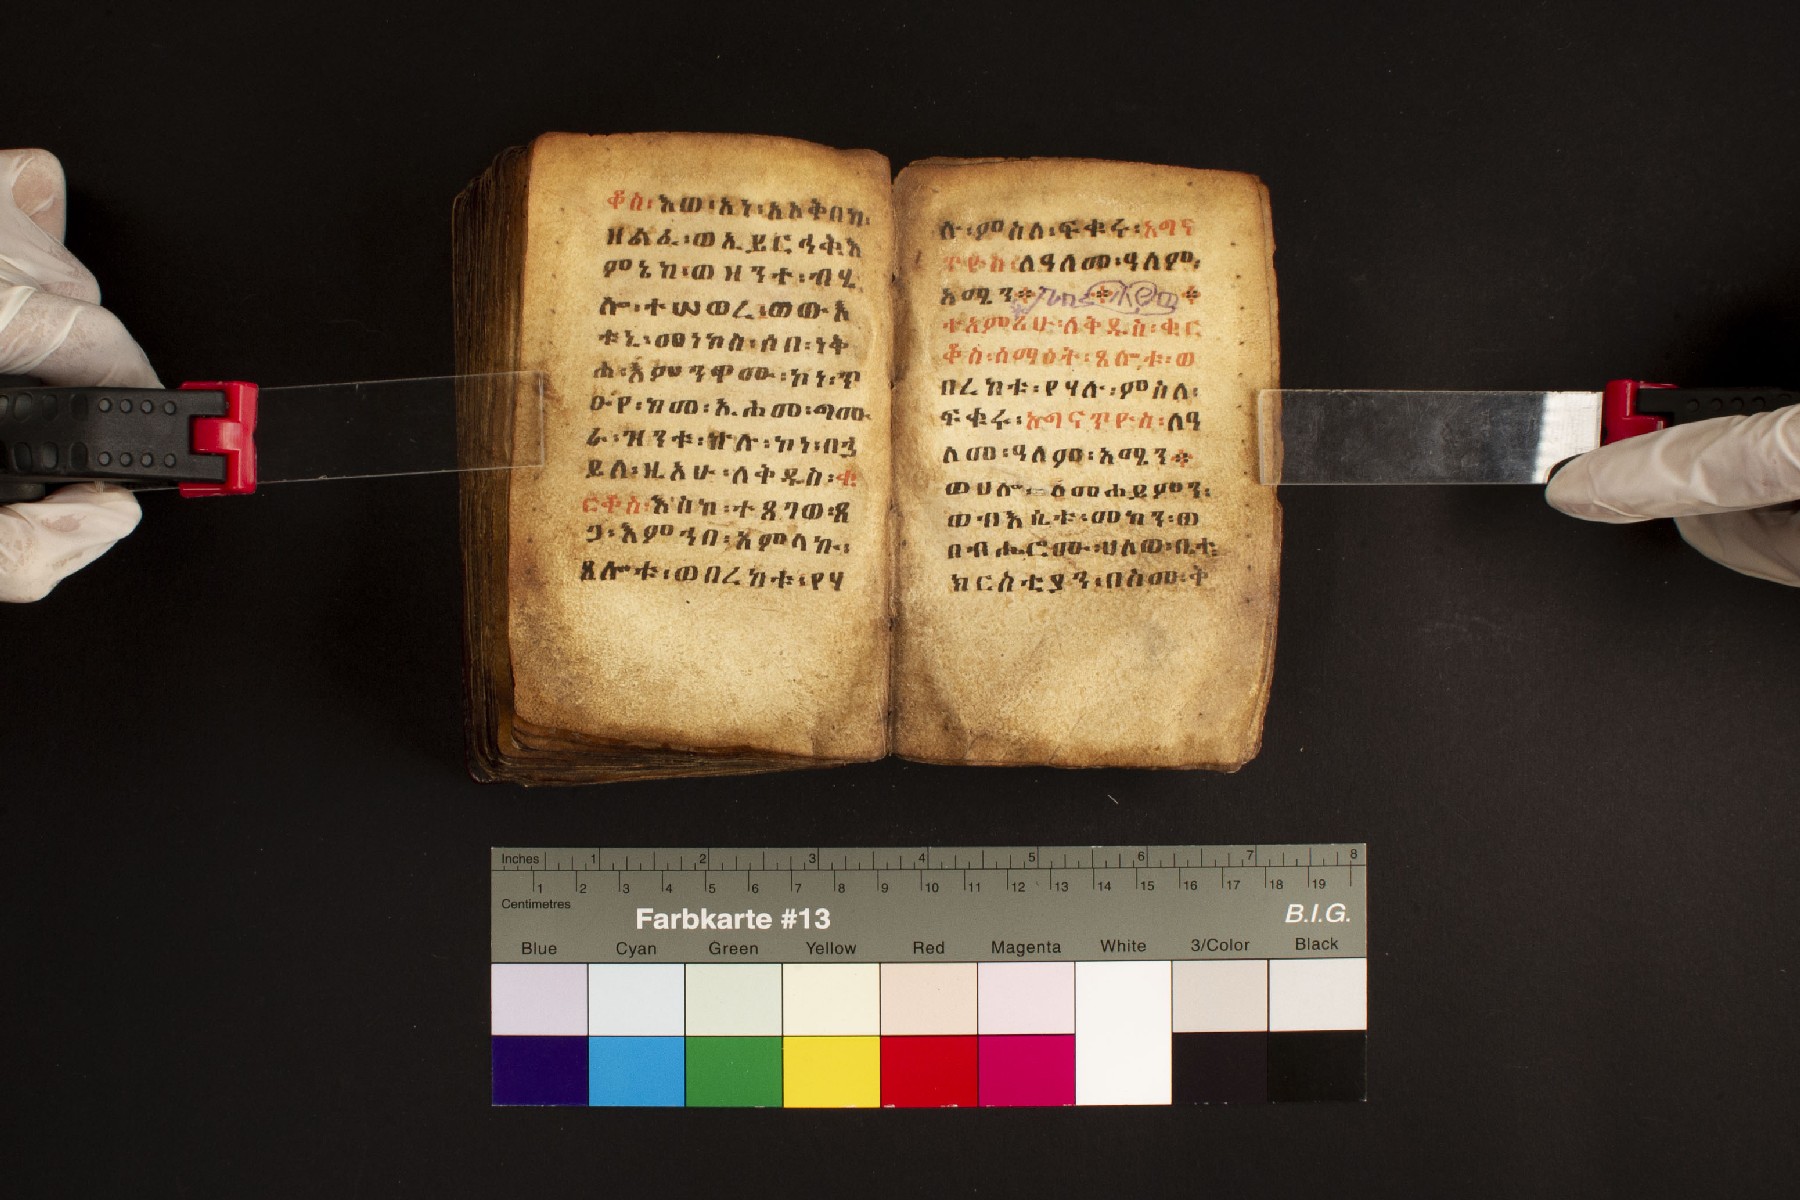 ቆስ፡እወ፡አነ፡አአቅበከ፡
ዘልፈ፡ወኢይርኅቅ፡እ
ምኔከ፡ወዝንተ፡ብሂ
ሎ፡ተሠወረ፡
ነቅ
ሐ፡እምንዋሙ፡ኮነ፡ጥ
ዑየ፡ከመ፡ኢሐመ፡ግሙ
ራ፡ዝንቱ፡ኵሉ፡ኮነ፡በኃ
ይለ፡ዚአሁ፡ለቅዱስ፡ቂ
ርቆስ፡እስከ፡ተጸገወ፡ጸ
ጋ፡እምኀበ፡አምላኩ፡
ጸሎቱ፡ወበረከቱ፡የሃ
ሉ፡ምስለ፡ፍቁሩ፡አግና
ጥዮስ፡ለዓለመ፡ዓለም፡
አሜን፨
ተአምሪሁ፡ለቅዱስ፡ቂር
ቆስ፡ሰማዕት፡ጸሎቱ፡ወ
በረከቱ፡የሃሉ፡ምስለ፡
ፍቁሩ፡አግናጥዮስ፡ለዓ
ለመ፡ዓለም፡አሜን፨
ወሀሎ
ወብእሲቱ፡መካን፡ወ
በብሔሮሙ፡ሀለወ፡ቤተ
ክርስቲያን፡በስመ፡ቅ
Inches 1 2 3 4 5 6 7 8
1 2 3 4 5 6 7 8 9 10 11 12 13 14 15 16 17 18 19
Centimetres
Farbkarte #13 B.I.G.
Blue Cyan Green Yellow Red Magenta White 3/Color Black